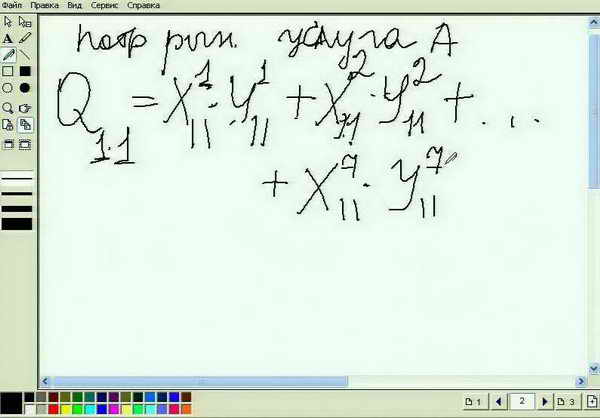 Файл Правка Вид Сервис Справка
потр рын. услуга A
Q₁.₁ = X₁₁¹ · Y₁₁¹ + X₁₁² · Y₁₁² + . . .
+ X₁₁⁷ · Y₁₁⁷
1 2 3